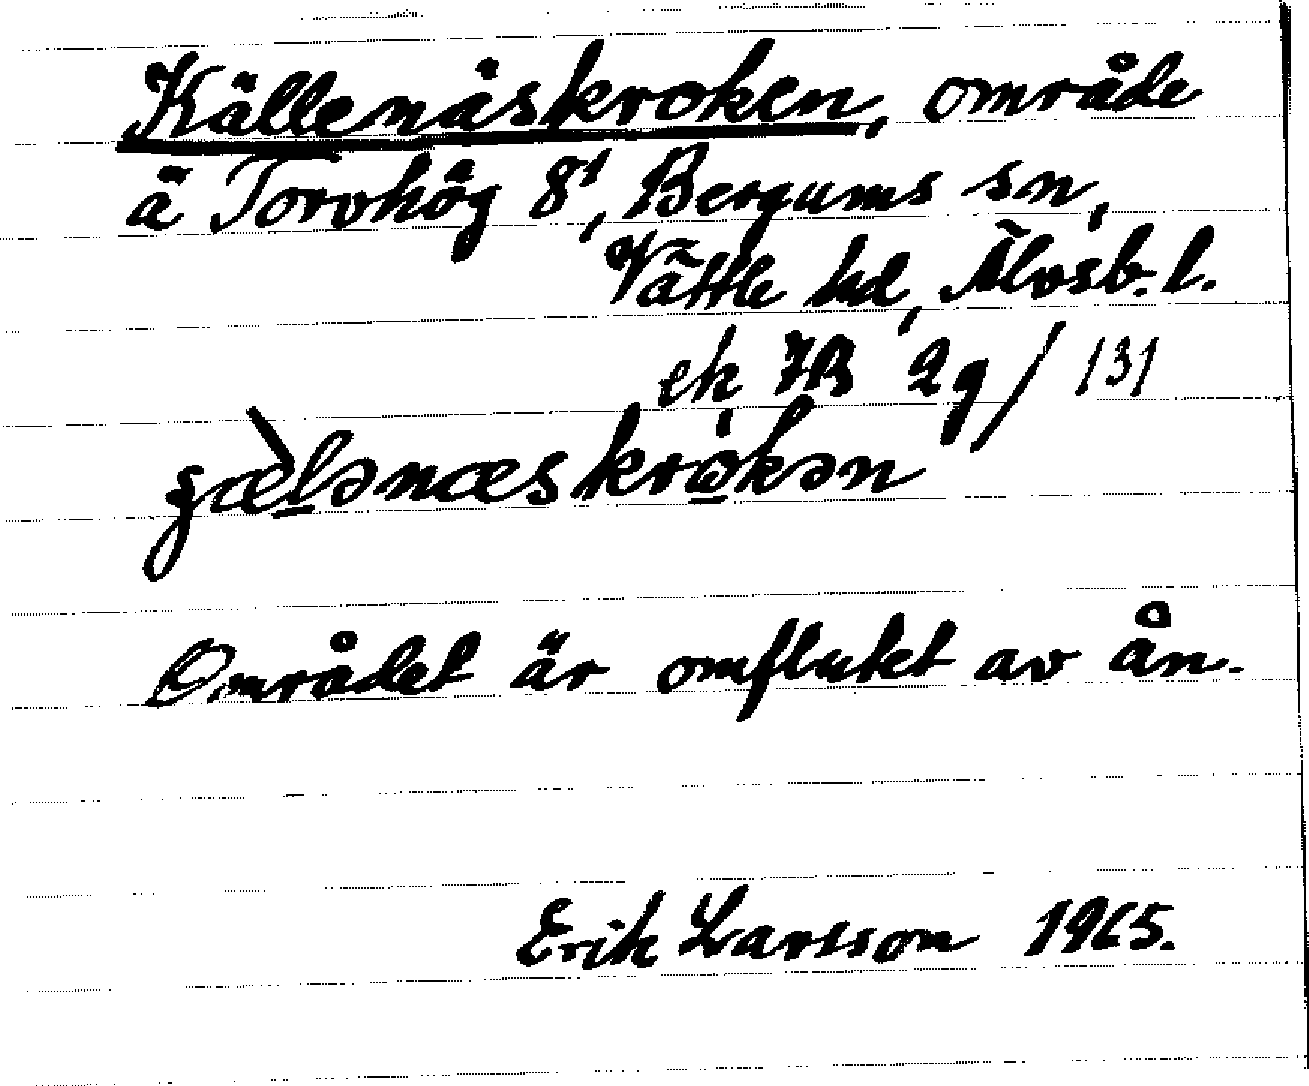 Källenäskroken, område
å Torvhög 8¹, Bergums sn,
Vättle hd, Älvsb. l.
ek 7B 2g / 131
Området är omflutet av ån.
Erik Larsson 1965.